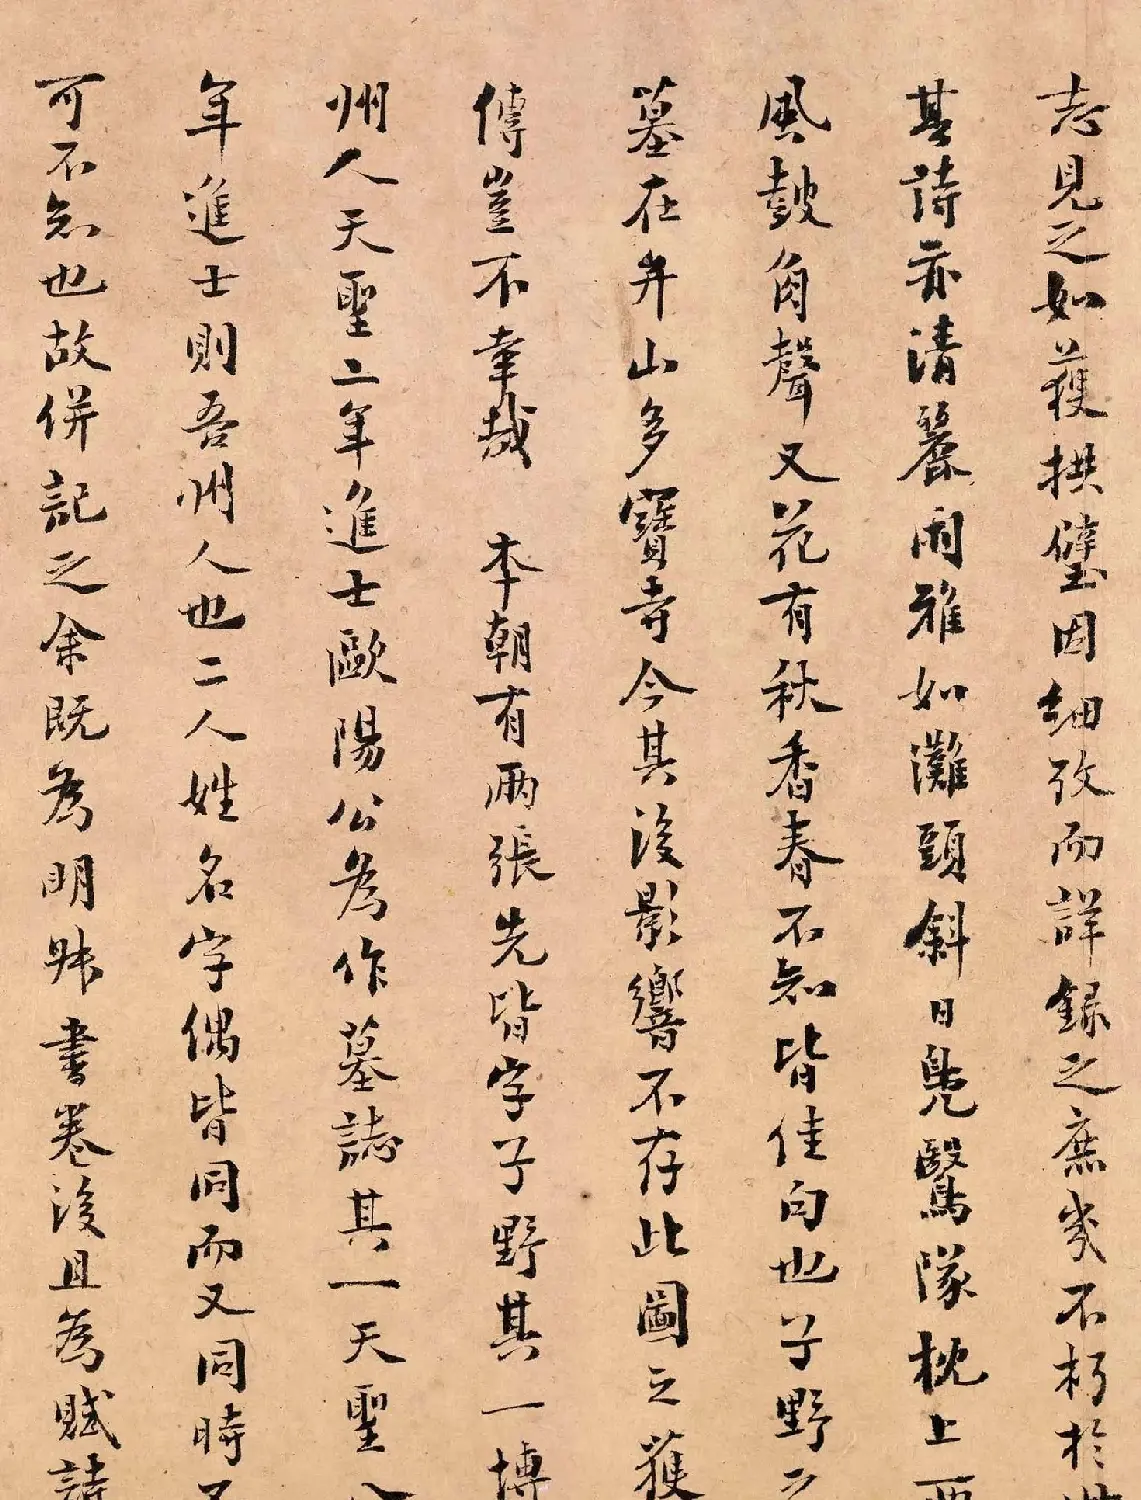 志見之如獲拱璧因細攷而詳錄之庶幾不朽於
其詩亦清麗閑雅如灘頭斜日鳧鷖隊枕上西
風鼓角聲又花有秋香春不知皆佳句也子野之
墓在弁山多寶寺今其後影響不存此圖之獲
傳豈不幸哉 本朝有兩張先皆字子野其一博
州人天聖二年進士歐陽公為作墓誌其一天聖八
年進士則吾州人也二人姓名字偶皆同而又同時又
可不知也故併記之余既為明叔書卷後且為賦詩